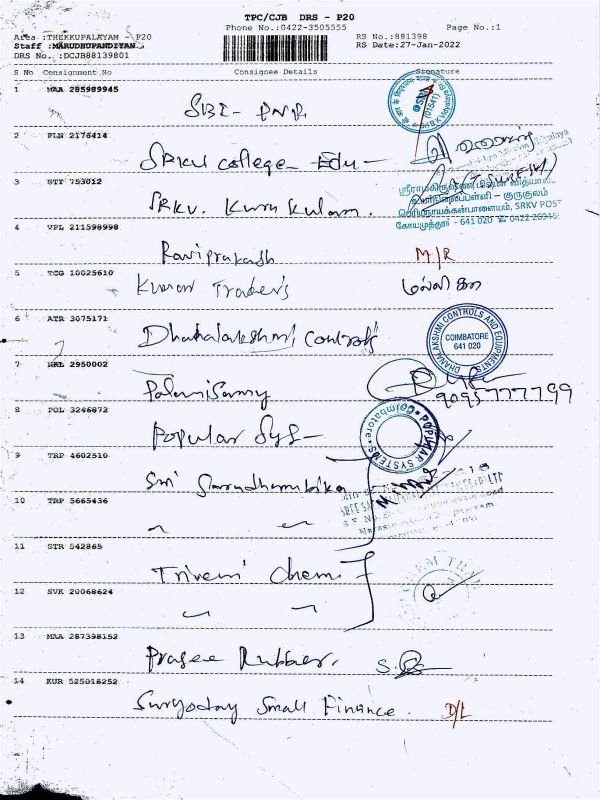 TPC/CJB DRS - P20
Phone No.:0422-3505555
Page No.:1
Area :THEKKUPALAYAM - P20
Staff :MARUDHUPANDIYAN
DRS No. :DCJB88139801
RS No.:881398
RS Date:27-Jan-2022
S No Consignment No Consignee Details Signature
1 MAA 285989945
SBI - PNP
2 PLN 2176414
SRKV College Edu -
3 STY 753012
SRKV. Kurukulam.
பெரியநாயக்கன்பாளையம், SRKV POST
கோயமுத்தூர் - 641 020
4 VPL 211598998
Raviprakash M/R
5 TCG 10025610
Kumar Traders மல்லிகா
6 ATR 3075171
Dhanalakshmi Controls
DHANALAKSHMI CONTROLS AND EQUIPMENTS
COIMBATORE
641 020
7 2950002
Palanisamy
9095777799
8 POL 3246872
Popular Sys -
POPULAR SYSTEMS Coimbatore
9 TRP 4602510
Sri
10 TRP 5665436
11 STR 542865
Triveni Chem
12 SVK 20068624
13 MAA 287398152
Prasee Rubber.
14 KUR 525018252
Suryoday Small Finance. D/L